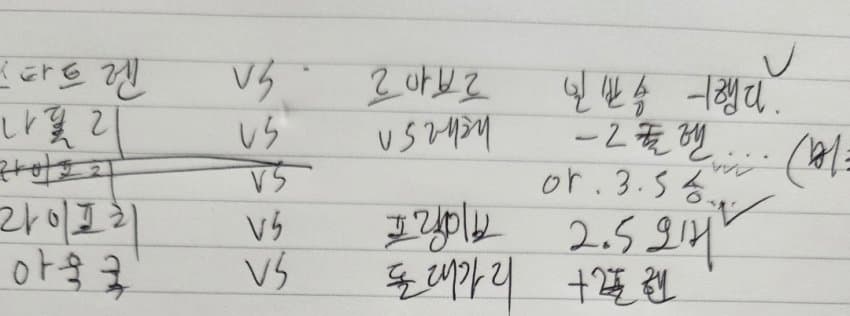 스타트렌 vs 르아브르 일반승 -1핸디.
나폴리 vs vs레체 -2플핸....
라이프치 vs or. 3.5승...
라이프치 vs 프랑이부 2.5오버
아욱국 vs 돌대가리 +2플핸